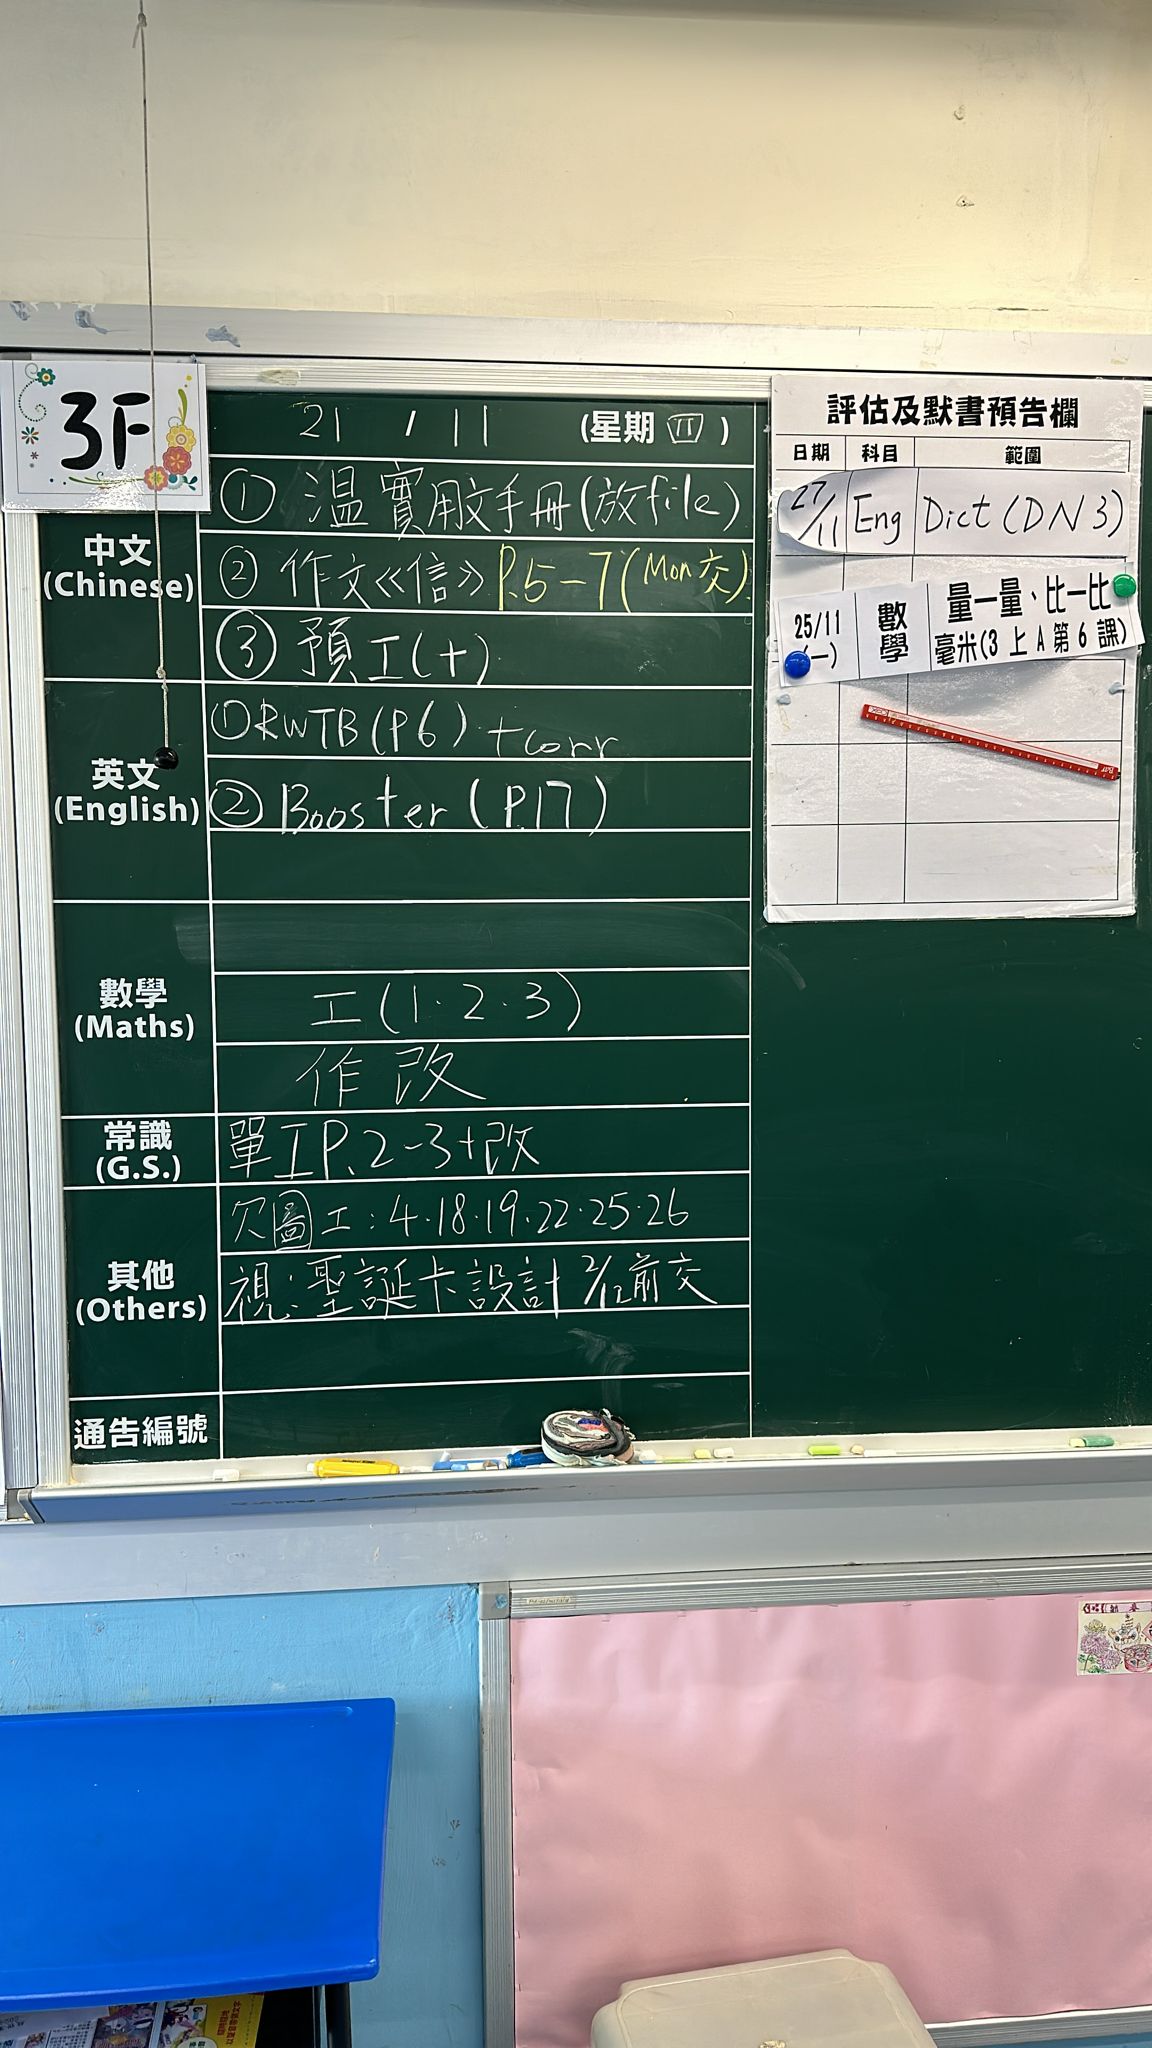 3F
21 / 11 (星期 四)
中文
(Chinese)
① 溫實用文手冊(放file)
② 作文《信》P.5-7(Mon交)
③ 預工(十)
英文
(English)
① RWTB(P6) + corr
② Booster (P.17)
數學
(Maths)
工(1.2.3)
作改
常識
(G.S.)
單工P.2-3+改
其他
(Others)
欠圖工:4.18.19.22.25.26
視:聖誕卡設計 2/12前交
通告編號
評估及默書預告欄
日期 科目 範圍
27/11 Eng Dict (DN3)
25/11 (一) 數學 量一量、比一比
毫米(3上A第6課)